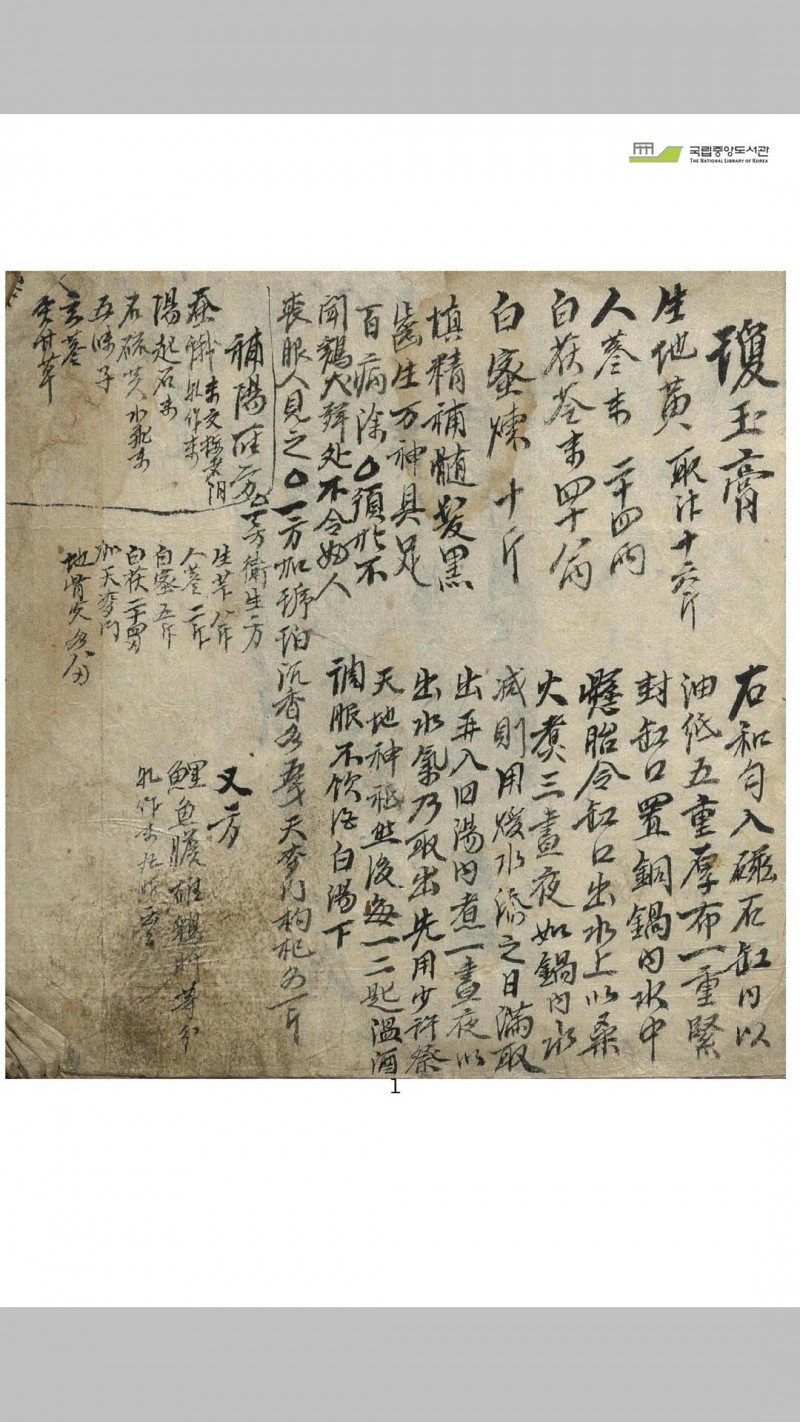 국립중앙도서관
THE NATIONAL LIBRARY OF KOREA
瓊玉膏
生地黃 取汁十六斤
人蔘末 二十四兩
白茯苓末四十八兩
白蜜煉 十斤
填精補髓髮黑
齒生万神具足
百病除〇須於不
聞鷄犬聲处不令婦人
喪服人見之〇一方加琥珀沉香各五戔天麥門枸杞各一斤
右和勻入磁石缸內以
油紙五重厚布一重緊
封缸口置銅鍋內水中
懸胎令缸口出水上以桑
火煮三晝夜如鍋內水
减則用煖水添之日滿取
出再入旧湯內煮一晝夜以
出水氣乃取出先用少許祭
天地神祇然後每一二匙溫酒
調服不饮酒白湯下
一方衛生方
生芐 八斤
人蔘 二斤
白蜜 五斤
白茯 二十四兩
加天麥門
地骨 各八兩
補陽
蚕蛾
陽起石末
石硫黃水飛末
五味子
玄蔘
甘草
又方
鯉魚膽雄鷄肝等分
1